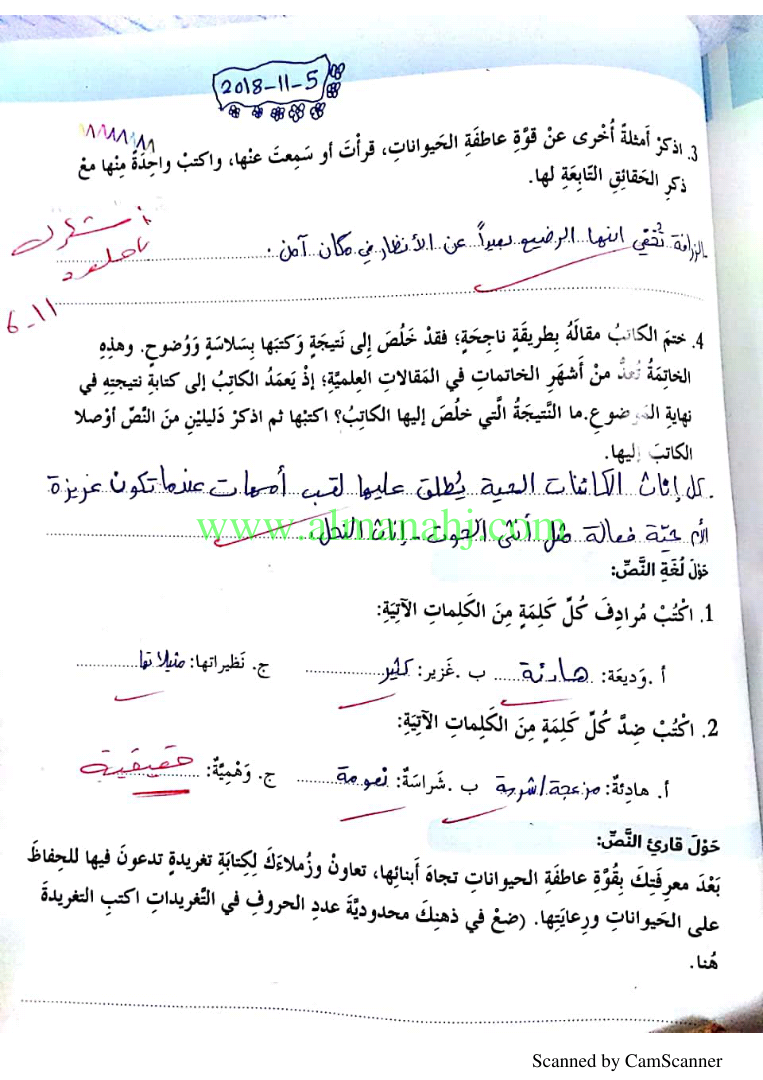 2018-11-5
3. اذكرْ أَمثلةً أُخْرى عنْ قوَّةِ عاطفَةِ الحَيواناتِ، قرأْتَ أو سَمِعتَ عنْها، واكتبْ واحِدَةً مِنْها معْ
ذكرِ الحَقائقِ التّابعَةِ لها.
الزرافة تُخفي ابنها الرضيع بعيداً عن الأنظار في مكان آمن.
6-11
4. ختمَ الكاتبُ مقالَهُ بِطريقَةٍ ناجحَةٍ؛ فقدْ خَلُصَ إلى نَتيجَةٍ وَكتبَها بِسَلاسَةٍ وَوُضوحٍ. وهذِهِ
الخاتِمَةُ تُعدُّ منْ أَشهَرِ الخاتمات في المَقالاتِ العِلميَّةِ؛ إذْ يَعمَدُ الكاتِبُ إلى كتابةِ نتيجتِهِ في
نهايةِ المَوضوعِ.ما النَّتيجَةُ الَّتي خلُصَ إليها الكاتِبُ؟ اكتبْها ثم اذكرْ دَليليْنِ منَ النّصِّ أوْصلا
الكاتبَ إليها.
كل إناث الكائنات الحية يُطلق عليها لقب أمهات عندما تكون غريزة
الأم حيّة فعالة مثل أنثى الحوت - إناث النحل.
www.almanahj.com
حَوْلَ لُغَةِ النَّصِّ:
1. اكْتُبْ مُرادِفَ كُلِّ كَلِمَةٍ مِنَ الكَلِماتِ الآتِيَةِ:
أ .وَديعَة: هادئة ب .غَزير: كثير ج. نَظيراتها: مثيلاتها
2. اكْتُبْ ضِدَّ كُلِّ كَلِمَةٍ مِنَ الكَلِماتِ الآتِيَةِ:
أ. هادِئةٌ: مزعجة/شرسة ب .شَراسَةٌ: نعومة ج. وَهْمِيَّةٌ: حقيقية
حَوْلَ قارِئِ النَّصِّ:
بَعْدَ معرِفَتِكَ بِقُوَّةِ عاطفَةِ الحيواناتِ تجاهَ أَبنائِها، تعاونْ وزُملاءَكَ لِكِتابَةِ تغريدةٍ تدعونَ فيها للحِفاظَ
على الحَيواناتِ ورِعايَتِها. (ضعْ في ذهنِكَ محدوديَّةَ عددِ الحروفِ في التّغريداتِ اكتبِ التغريدةَ
هُنا.
Scanned by CamScanner